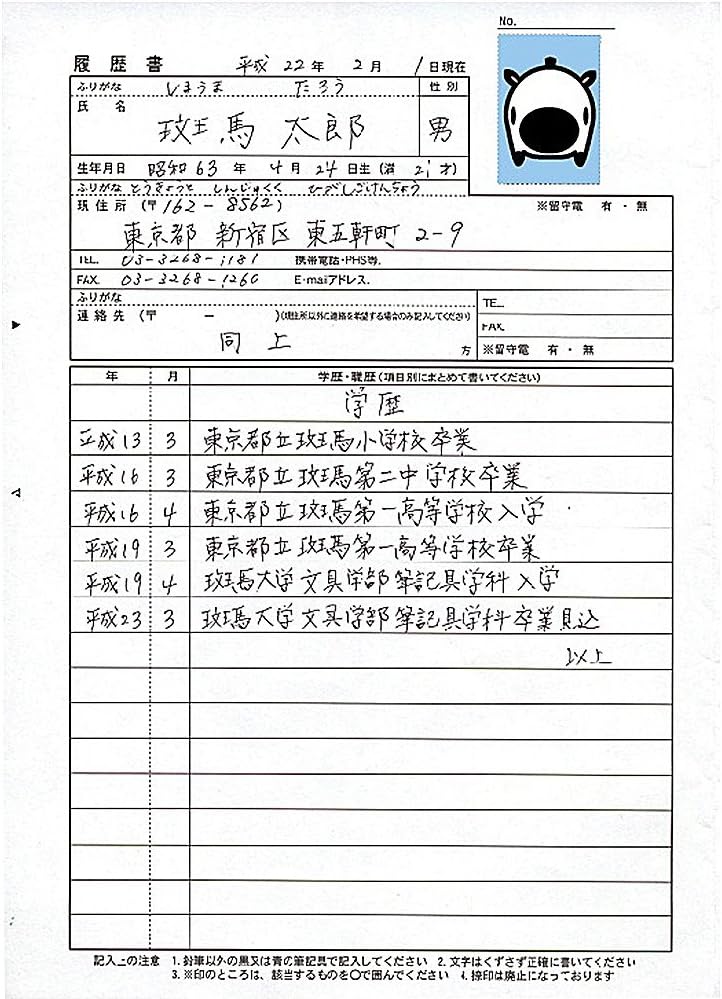 No.
履歴書 平成22年2月1日現在
ふりがな しまうま たろう 性別
氏名 斑馬 太郎 男
生年月日 昭和63年4月24日生(満21才)
ふりがな とうきょうと しんじゅくく ひがしごけんちょう
現住所(〒162-8562) ※留守電 有・無
東京都 新宿区 東五軒町 2-9
TEL. 03-3268-1181 携帯電話・PHS等.
FAX. 03-3268-1260 E-mailアドレス.
ふりがな TEL.
連絡先(〒 - )(現住所以外に連絡を希望する場合のみ記入してください) FAX.
同上 方 ※留守電 有・無
年 月 学歴・職歴(項目別にまとめて書いてください)
学歴
平成13 3 東京都立斑馬小学校卒業
平成16 3 東京都立斑馬第二中学校卒業
平成16 4 東京都立斑馬第一高等学校入学
平成19 3 東京都立斑馬第一高等学校卒業
平成19 4 斑馬大学文具学部筆記具学科入学
平成23 3 斑馬大学文具学部筆記具学科卒業見込
以上
記入上の注意 1.鉛筆以外の黒又は青の筆記具で記入してください 2.文字はくずさず正確に書いてください
3.※印のところは、該当するものを〇で囲んでください 4.捺印は廃止になっております